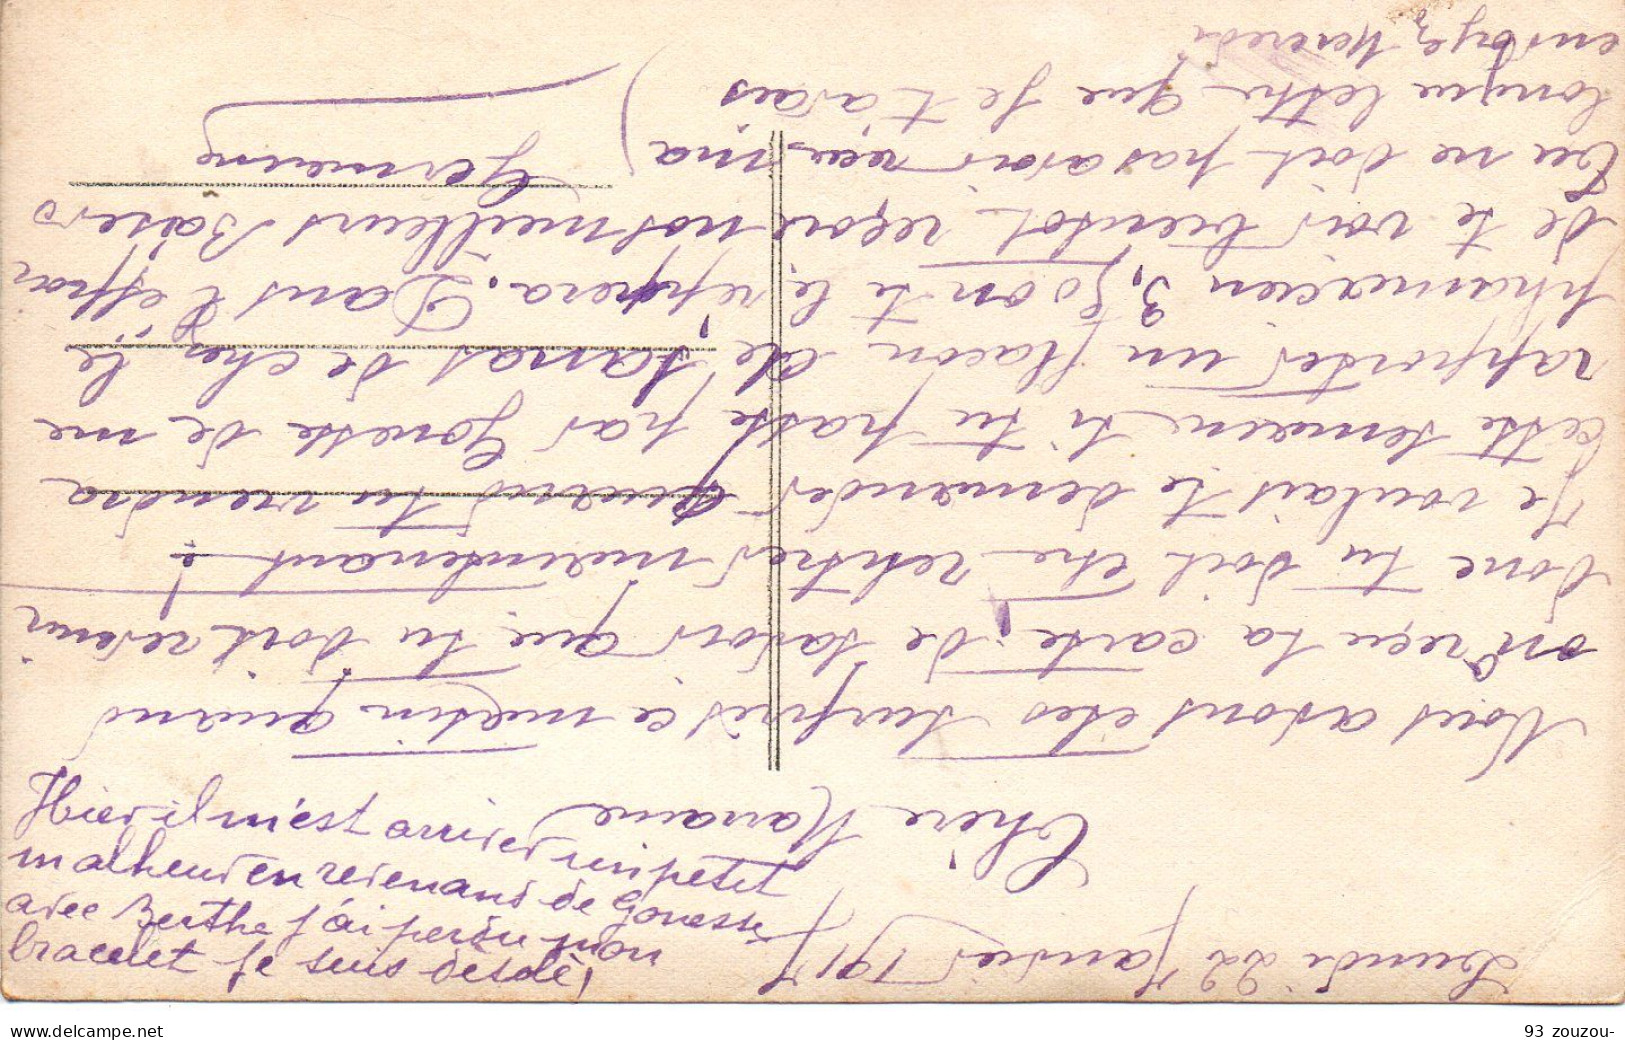 Lundi 22 Janvier 1917
Chère Maman
Nous avons étés surpris ce matin quand
on reçu ta carte, de savoir que tu doit revenir
donc tu doit être rentrer maintenant !
Je voulais te demander quand tu viendra
cette semaine si tu passe par Gonesse de me
rapporter un flacon de Tanas de chez le
pharmacien 3,50 on te le repaera. Dans l'espoir
de te voir bientot reçoit nos meilleurs Baisers
tu ne doit pas avoir reçu ma
longue lettre que je t'avais
envoyez Mercredi
Germaine
Hier il m'est arriver un petit
malheur en revenant de Gonesse
avec Berthe j'ai perdu mon
bracelet je suis désolé!
www.delcampe.net
93 zouzou-